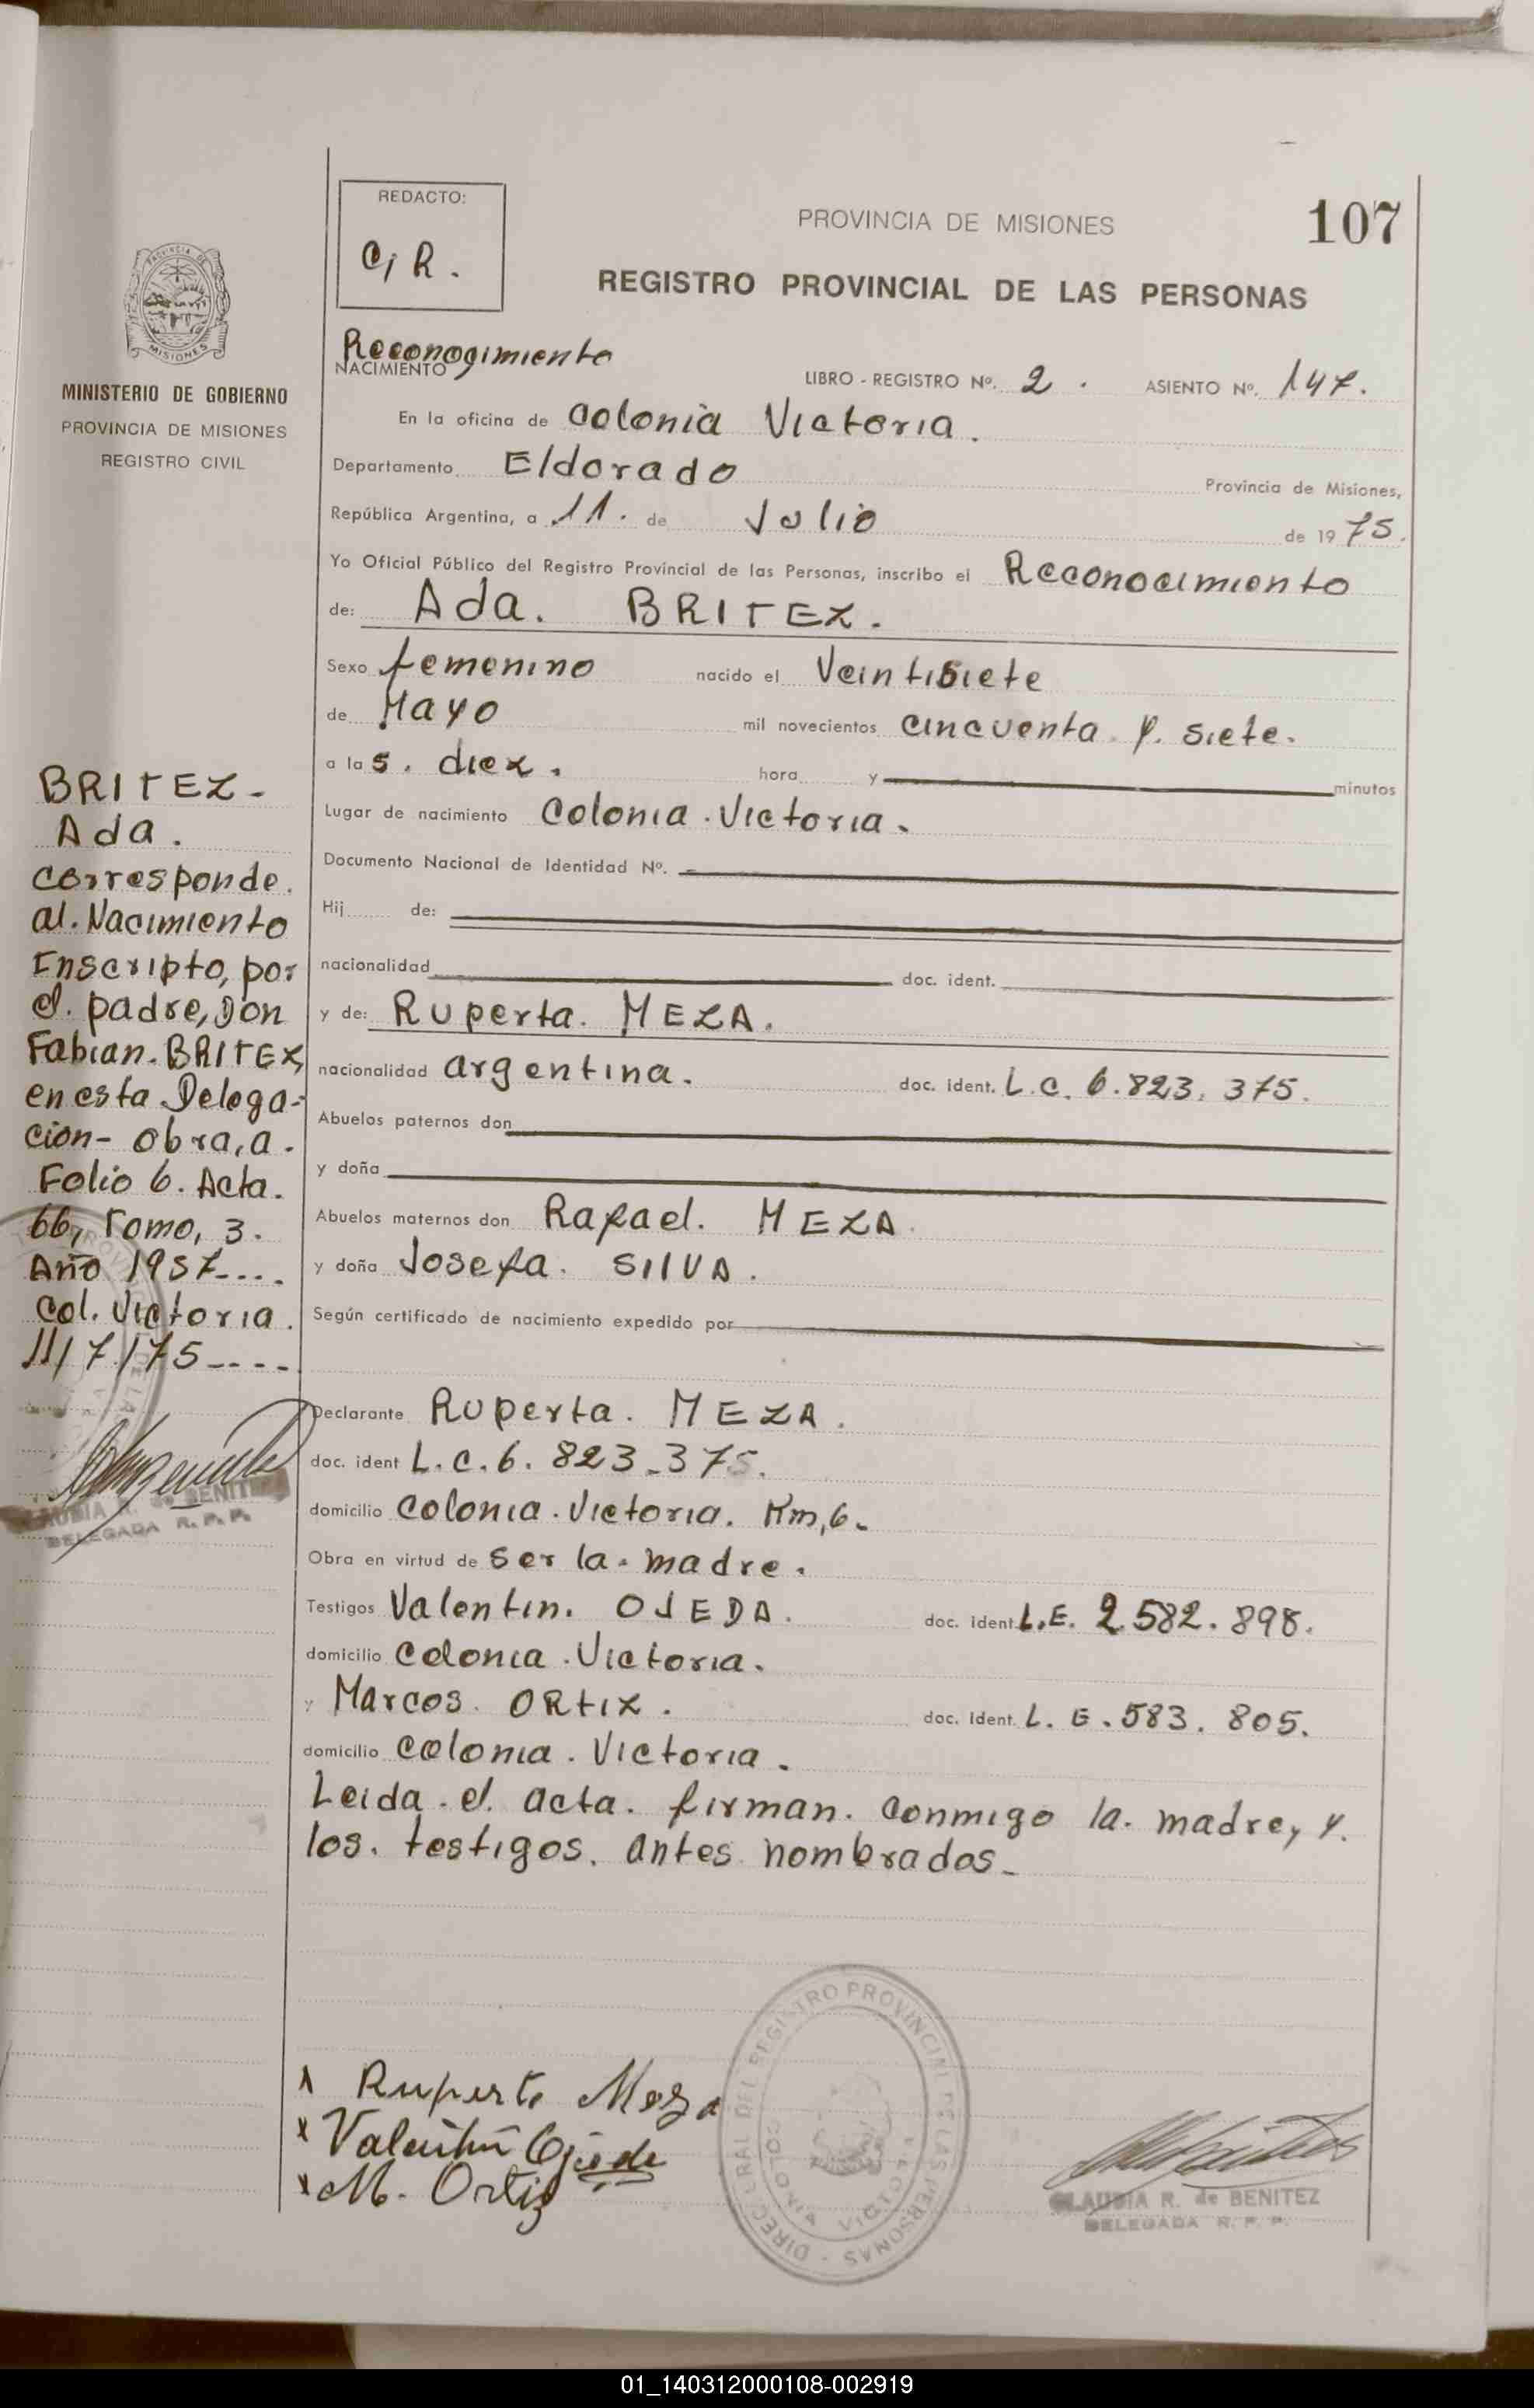 REDACTO:
C, R.
PROVINCIA DE MISIONES
107
REGISTRO PROVINCIAL DE LAS PERSONAS
MISIONES
MINISTERIO DE GOBIERNO
PROVINCIA DE MISIONES
REGISTRO CIVIL
Reconogimiento
NACIMIENTO
LIBRO - REGISTRO Nº. 2. ASIENTO Nº. 147.
En la oficina de Colonia Victoria.
Departamento Eldorado Provincia de Misiones,
República Argentina, a 11. de Julio de 1975.
Yo Oficial Público del Registro Provincial de las Personas, inscribo el Reconocimiento
de: Ada. BRITEZ.
Sexo femenino nacido el Veintisiete
de Mayo mil novecientos cincuenta y. siete.
a las. diez. hora y minutos
Lugar de nacimiento Colonia. Victoria.
Documento Nacional de Identidad Nº.
Hij de:
nacionalidad doc. ident.
y de: Ruperta. MEZA.
nacionalidad argentina. doc. ident. L.C. 6.823. 375.
Abuelos paternos don
y doña
Abuelos maternos don Rafael. MEZA.
y doña Josefa. SIlVA.
Según certificado de nacimiento expedido por
Declarante Ruperta. MEZA.
doc. ident L.C.6. 823.375.
domicilio Colonia. Victoria. Km,6.
Obra en virtud de ser la. madre.
Testigos Valentin. OJEDA. doc. ident. L.E. 2.582.898.
domicilio Colonia. Victoria.
y Marcos. ORtiz. doc. Ident. L. E. 583. 805.
domicilio Colonia. Victoria.
Leida. el. acta. firman. conmigo la. madre, y.
los. testigos. antes nombrados-
BRITEZ-
Ada.
corresponde.
al. Nacimiento
Enscripto, por
el. padre, Don
Fabian. BRITEZ,
en esta Delega-
cion- obra, a.
Folio 6. Acta.
66, Tomo, 3.
Año 1957....
Col. Victoria.
11/7/75----
CLAUDIA R. de BENITEZ
DELEGADA R. P. P.
x Ruperta Meza
x Valentin Ojeda
x M. Ortiz
DIREC. GRAL DEL REGISTRO PROVINCIAL DE LAS PERSONAS
CLAUDIA R. de BENITEZ
DELEGADA R. P. P.
01_140312000108-002919